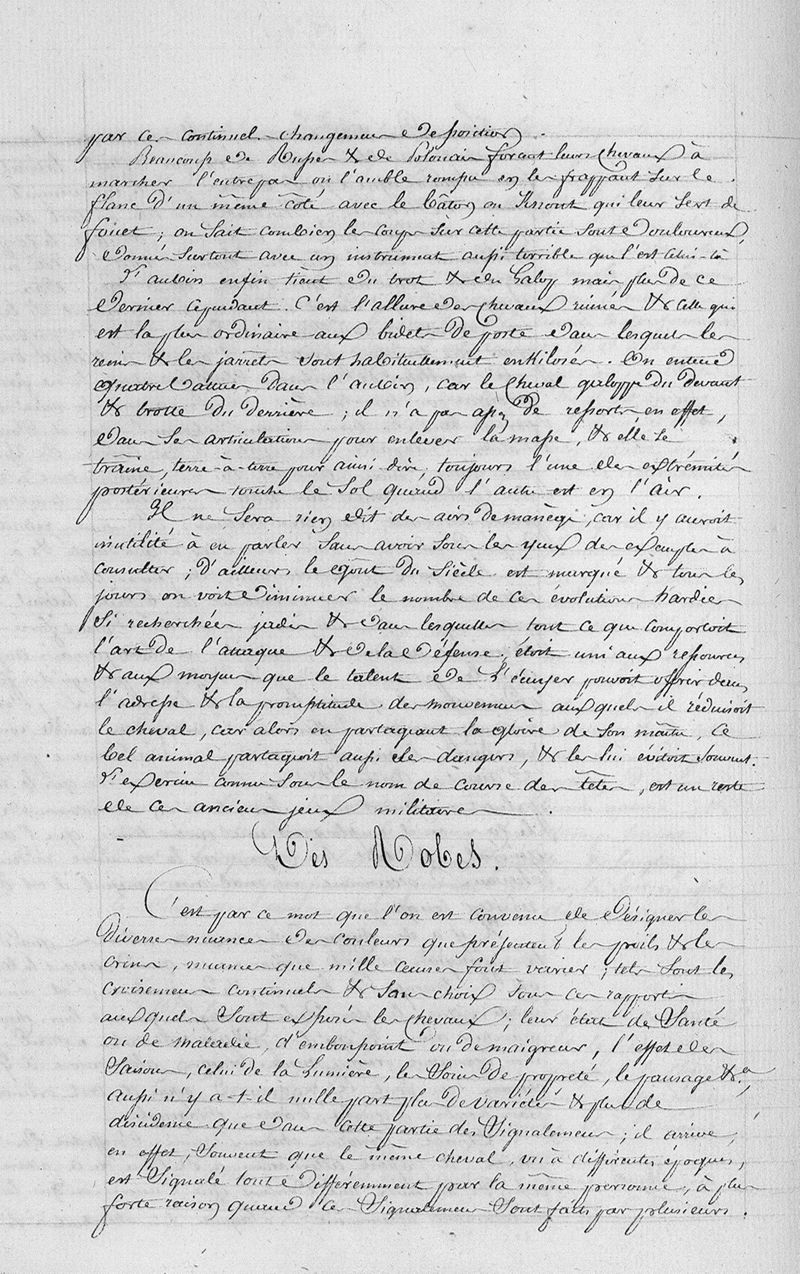 par ce continuel changement de position.
Beaucoup de Russes & de Polonais forcent leurs chevaux à
marcher l'entrepas ou l'amble rompu en les frappant sur le
flanc d'un même côté avec le bâton ou Knout qui leur sert de
fouet; on sait combien les coups sur cette partie sont douloureux,
donnés surtout avec un instrument aussi terrible que l'est celui-là
L'aubin enfin tient du trot & du Galop mais plus de ce
dernier cependant. C'est l'allure des chevaux ruinés & celle qui
est la plus ordinaire aux bidets de poste dans lesquels les
reins & les jarrets sont habituellement enkilosés. On entend
quatre battues dans l'aubin, car le cheval galoppe du devant
& trotte du derrière; il n'a pas assez de ressorts en effet,
dans ses articulations pour enlever la masse, & elle se
traîne, terre-à-terre pour ainsi dire; toujours l'une des extrémités
postérieures touche le sol quand l'autre est en l'air.
Il ne sera rien dit des airs de manège, car il y auroit
inutilité à en parler sans avoir sous les yeux des exemples à
consulter; d'ailleurs le goût du siècle est marqué & tous les
jours on voit diminuer le nombre de ces évolutions hardies
si recherchées jadis & dans lesquelles tout ce que comportoit
l'art de l'attaque & de la défense, étoit uni aux ressources
& aux moyens que le talent de l'écuyer pouvoit offrir dans
l'adresse & la promptitude des mouvemens auxquels il réduisoit
le cheval, car alors en partageant la gloire de son maître, ce
bel animal partageoit aussi ses dangers, & les lui évitoit souvent.
L'exercice connu sous le nom de course des têtes, est un reste
de ces anciens jeux militaires.
Des Robes.
C'est par ce mot que l'on est convenu de désigner les
diverses nuances de couleurs que présentent les poils & les
crins, nuances que mille causes font varier; tels sont les
croisemens continuels & sans choix sous ces rapports
auxquels sont exposés les chevaux; leur état de santé
ou de maladie, d'embonpoint ou de maigreur, l'effet des
saisons, celui de la lumière, les soins de propreté, le pansage &a,
aussi n'y a-t-il nulle part plus de variétés & plus de
dissidence que dans cette partie des signalemens; il arrive,
en effet, souvent que le même cheval, vu à différentes époques,
est signalé tout différemment par la même personne, à plus
forte raison quand ces signalemens sont faits par plusieurs.